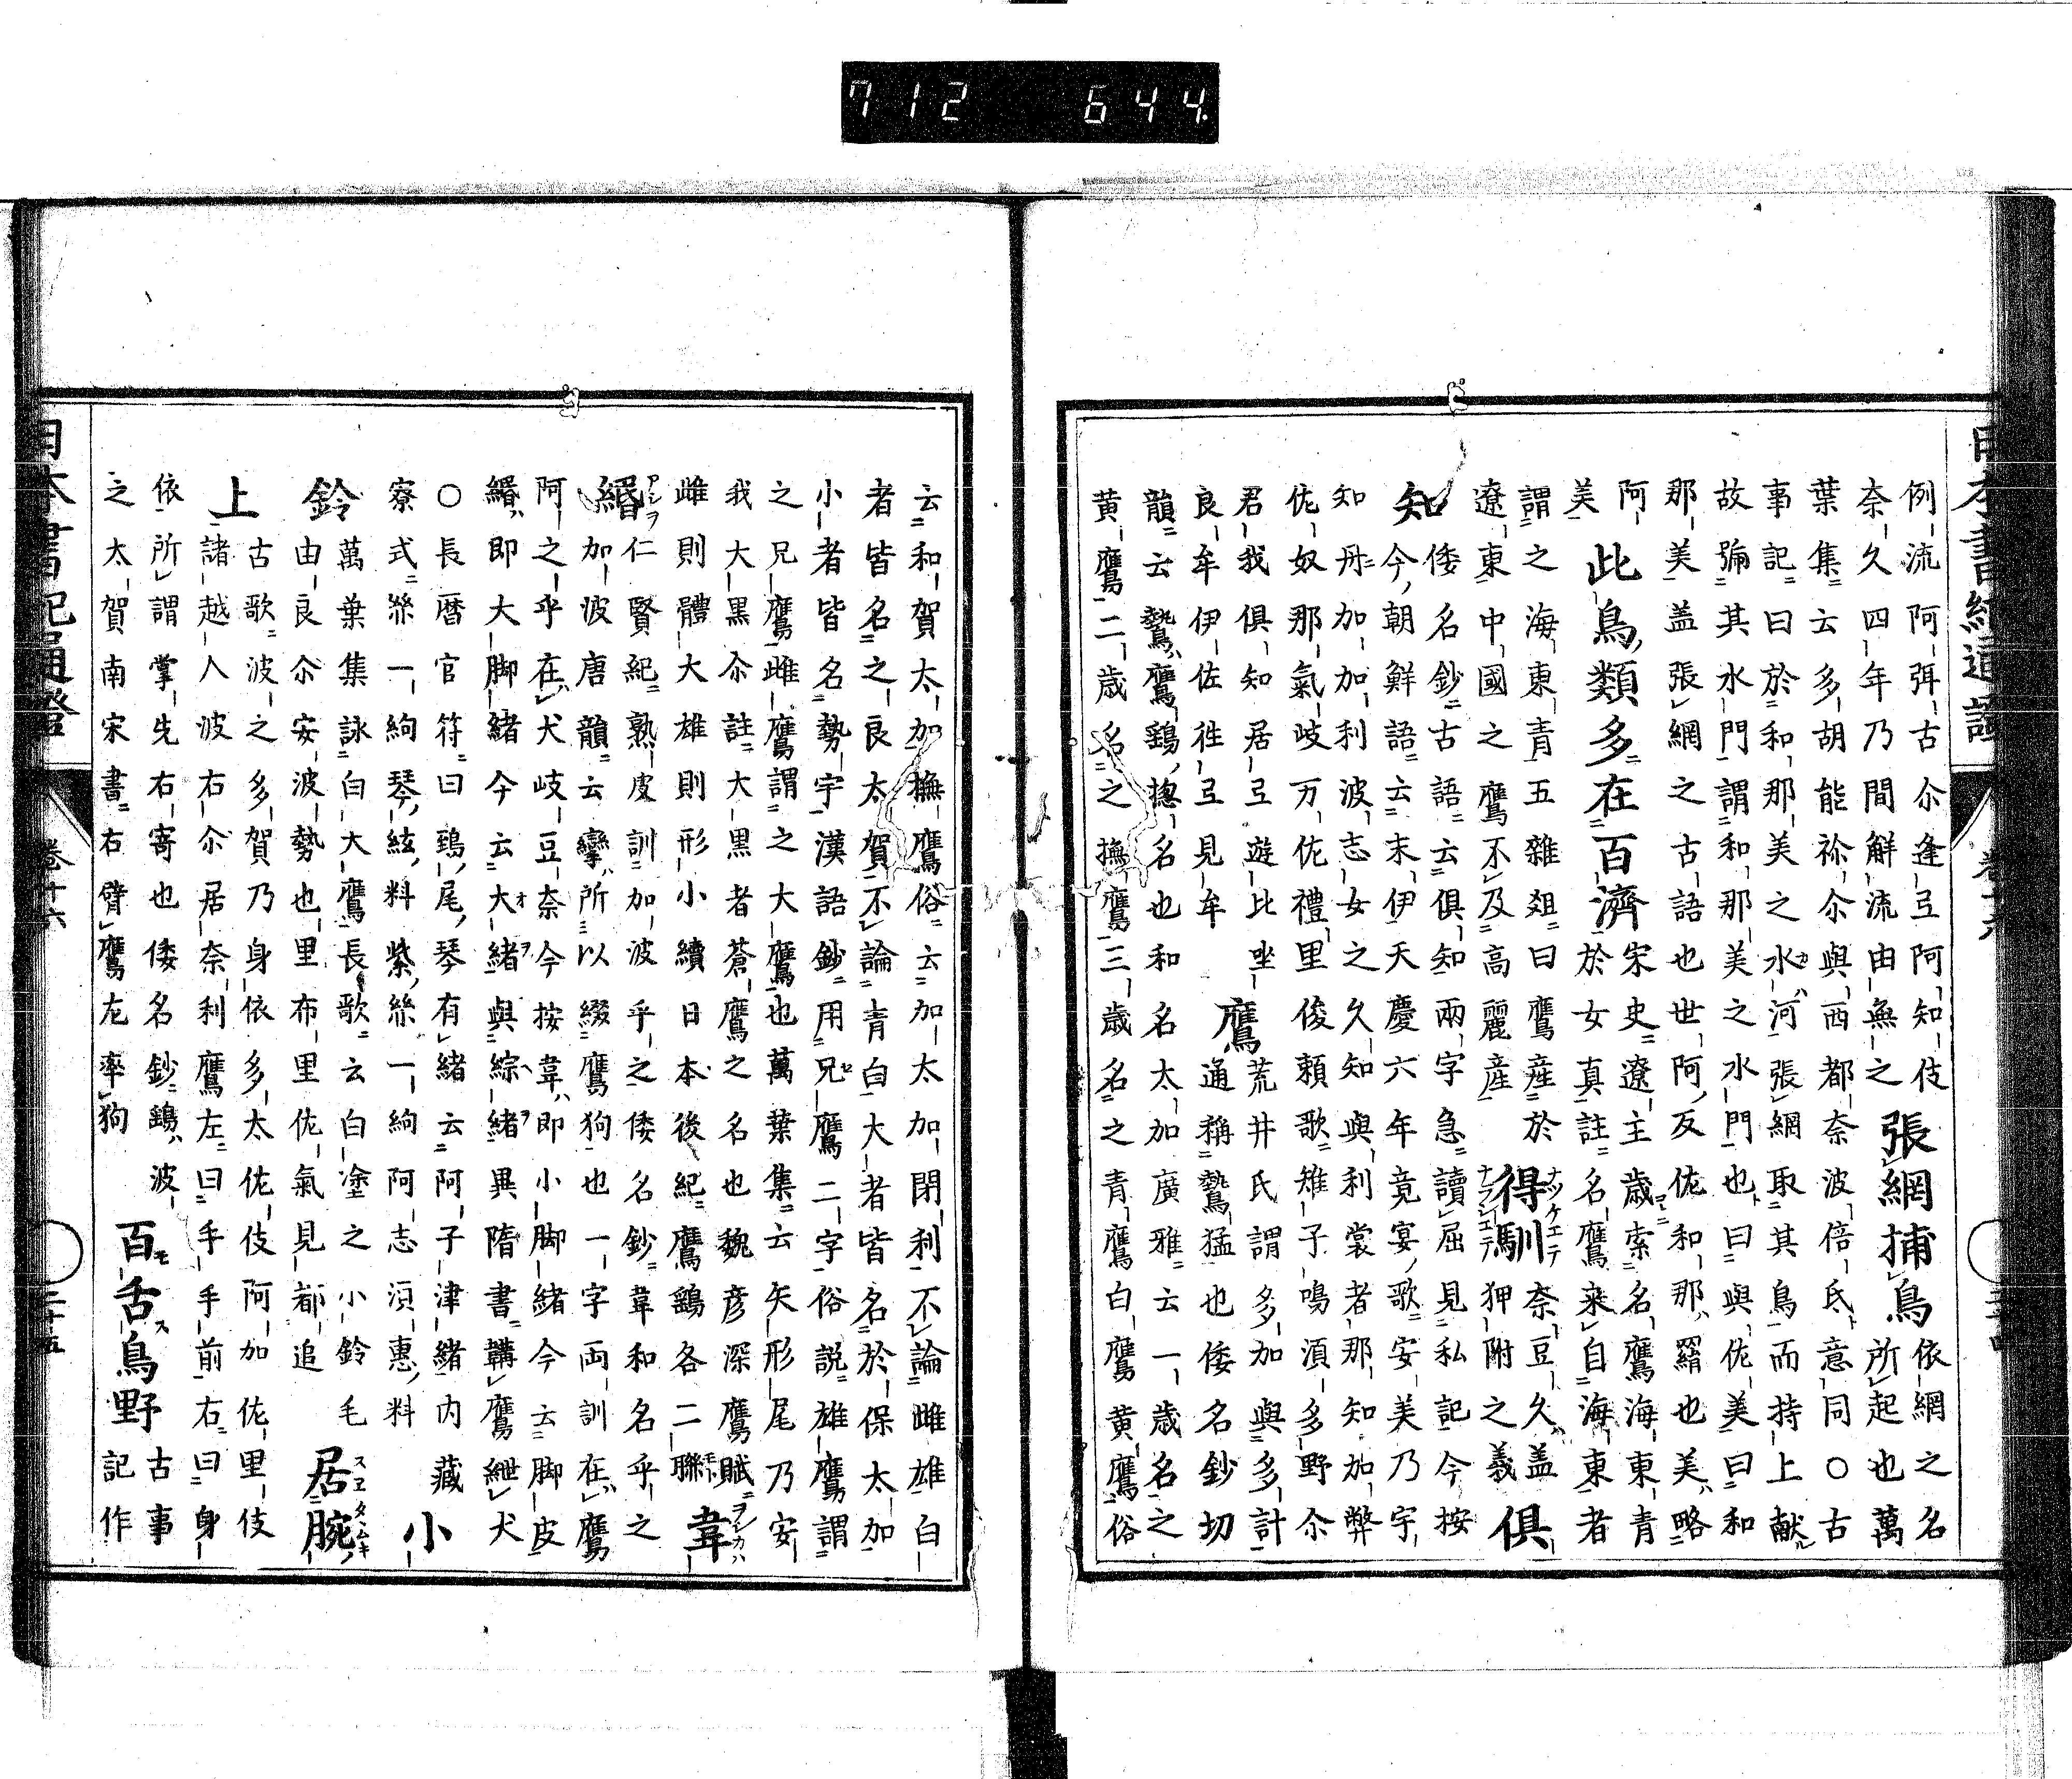 712 644
例流阿弭古尒逢弖阿知伎張網捕鳥依網之名
奈久四年乃間鮮流由無之所起也萬
葉集云多胡能祢尒與西都奈波倍氐意同〇古
事記曰於和那美之水河張網取其鳥而持上献
故號其水門謂和那美之水門也曰與佐美曰和
那美盖張網之古語也世阿反佐和那羅也美略
阿此鳥類多在百濟宋史遼主歳索名鷹海東青
美於女真註名鷹来自海東者
謂之海東青五雜爼曰鷹産於得馴奈豆久盖
遼東中國之鷹不及高麗産狎附之義俱
知倭名鈔古語云俱知兩字急讀屈見私記今按
今朝鮮語云末伊天慶六年竟宴歌安美乃宇
知丹加加利波志女之久知與利裳者那知加弊
佐奴那氣岐万佐禮里俊頼歌雉子鳴湏多野尒
君我俱知居弖遊比坐鷹荒井氏謂多加與多計
良牟伊佐徃弖見牟通稱鷙猛也倭名鈔切
韻云鷙鷹鷂揔名也和名太加廣雅云一歳名之
黄鷹二歳名之撫鷹三歳名之青鷹白鷹黄鷹俗
云和賀太加撫鷹俗云加太加閇利不論雌雄白
者皆名之良太賀不論青白大者皆名於保太加
小者皆名勢宇漢語鈔用兄鷹二字俗説雄鷹謂
之兄鷹雌鷹謂之大鷹也萬葉集云矢形尾乃安
我大黒尒註大黒者蒼鷹之名也魏彦深鷹賦
雌則體大雄則形小續日本後紀鷹鷂各二聯韋
緡仁賢紀熟皮訓加波乎之倭名鈔韋和名乎之
加波唐韻云攣所以綴鷹狗也一字両訓在鷹
阿之乎在犬岐豆奈今按韋即小脚緒今云脚皮
緡即大脚緒今云大緒與綜緒異隋書韝鷹紲犬
〇長暦官符曰鵄尾琴有緒云阿子津緒内藏
寮式𢇁一絇琴絃料紫絲一絇阿志湏惠料小
鈴萬葉集詠白大鷹長歌云白塗之小鈴毛
由良尒安波勢也里布里佐氣見都追居腕
上古歌波之多賀乃身依多太佐伎阿加佐里伎
諸越人波右尒居奈利鷹左曰手手前右曰身
依所謂掌先右寄也倭名鈔鷂波百舌鳥野古事
之太賀南宋書右臂鷹左率狗記作
卷十六